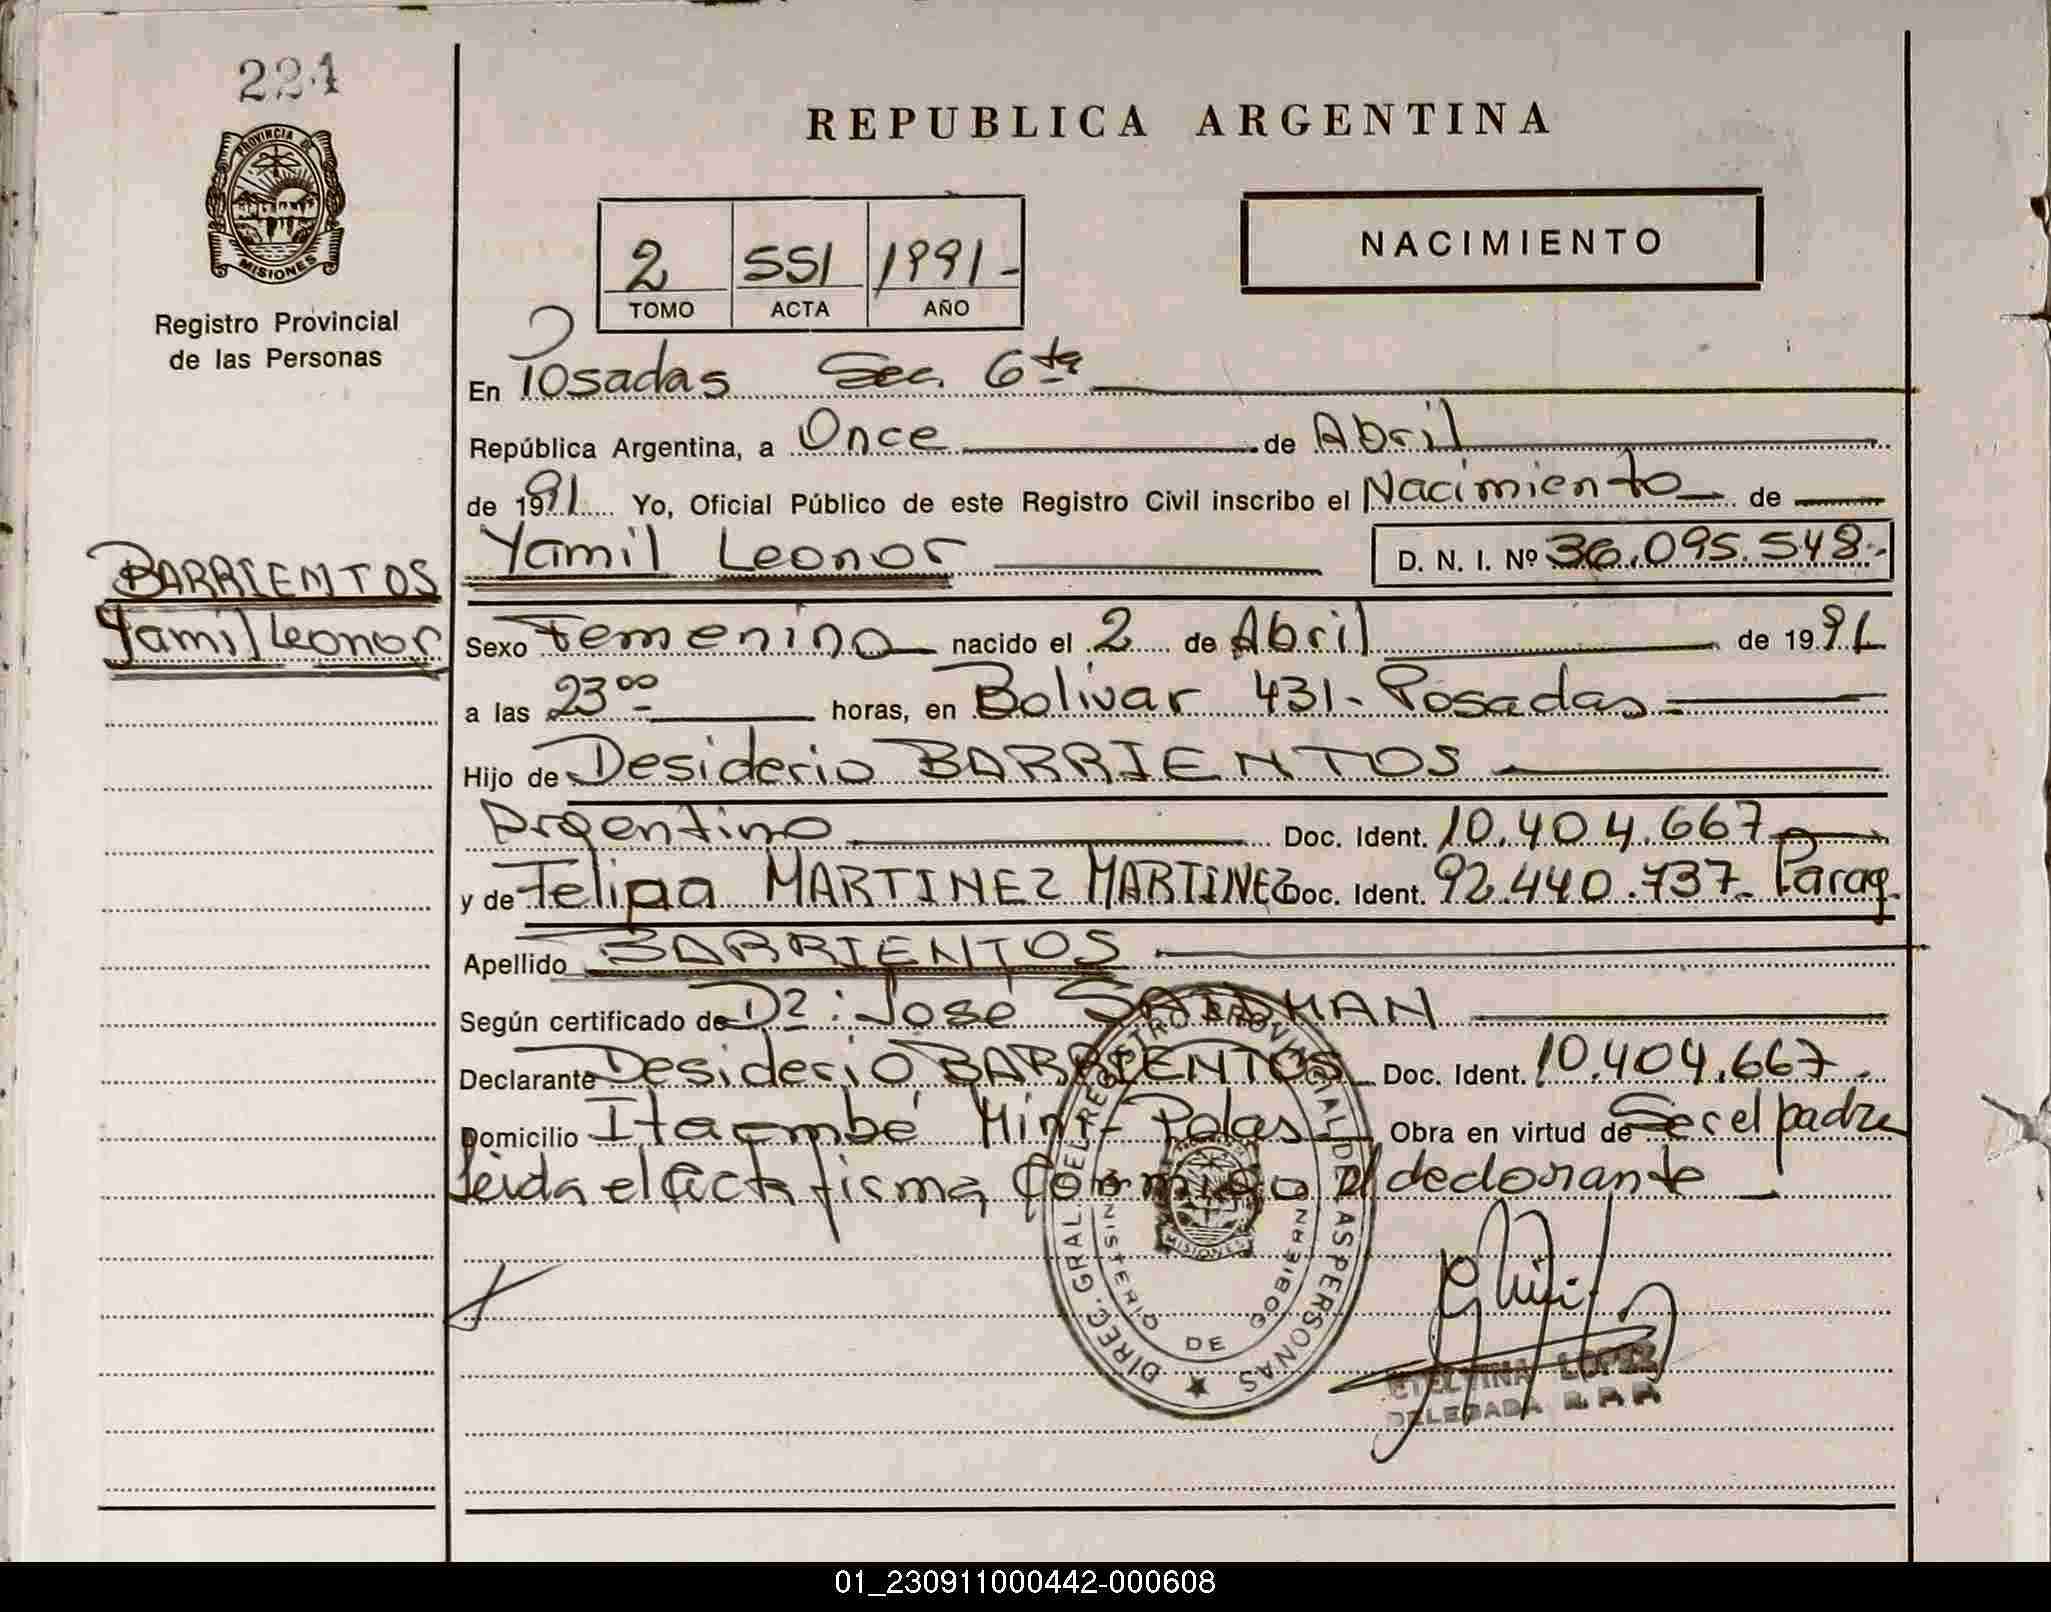 224
PROVINCIA DE
MISIONES
Registro Provincial
de las Personas
BARRIENTOS
Yamil Leonor
REPUBLICA ARGENTINA
2 551 1991-
TOMO ACTA AÑO
NACIMIENTO
En Posadas Sec. 6ta
República Argentina, a Once de Abril
de 1991 Yo, Oficial Público de este Registro Civil inscribo el Nacimiento de
Yamil Leonor D. N. I. Nº 36.095.548.-
Sexo Femenino nacido el 2 de Abril de 1991
a las 23⁰⁰ horas, en Bolivar 431- Posadas-
Hijo de Desiderio BARRIENTOS
Argentino Doc. Ident. 10.404.667
y de Felipa MARTINEZ MARTINEZ Doc. Ident. 92.440.737- Parag.
Apellido BARRIENTOS
Según certificado de Dr: Jose
Declarante Desiderio BARRIENTOS Doc. Ident. 10.404.667.
Domicilio Itaembé Miní- Pdas Obra en virtud de Ser el padre
Leida el acta firma conmigo el declarante
DIREC. GRAL. DEL REGISTRO PROVINCIAL DE LAS PERSONAS
MINISTERIO DE GOBIERNO
MISIONES
ETELVINA LOPEZ
DELEGADA
01_230911000442-000608